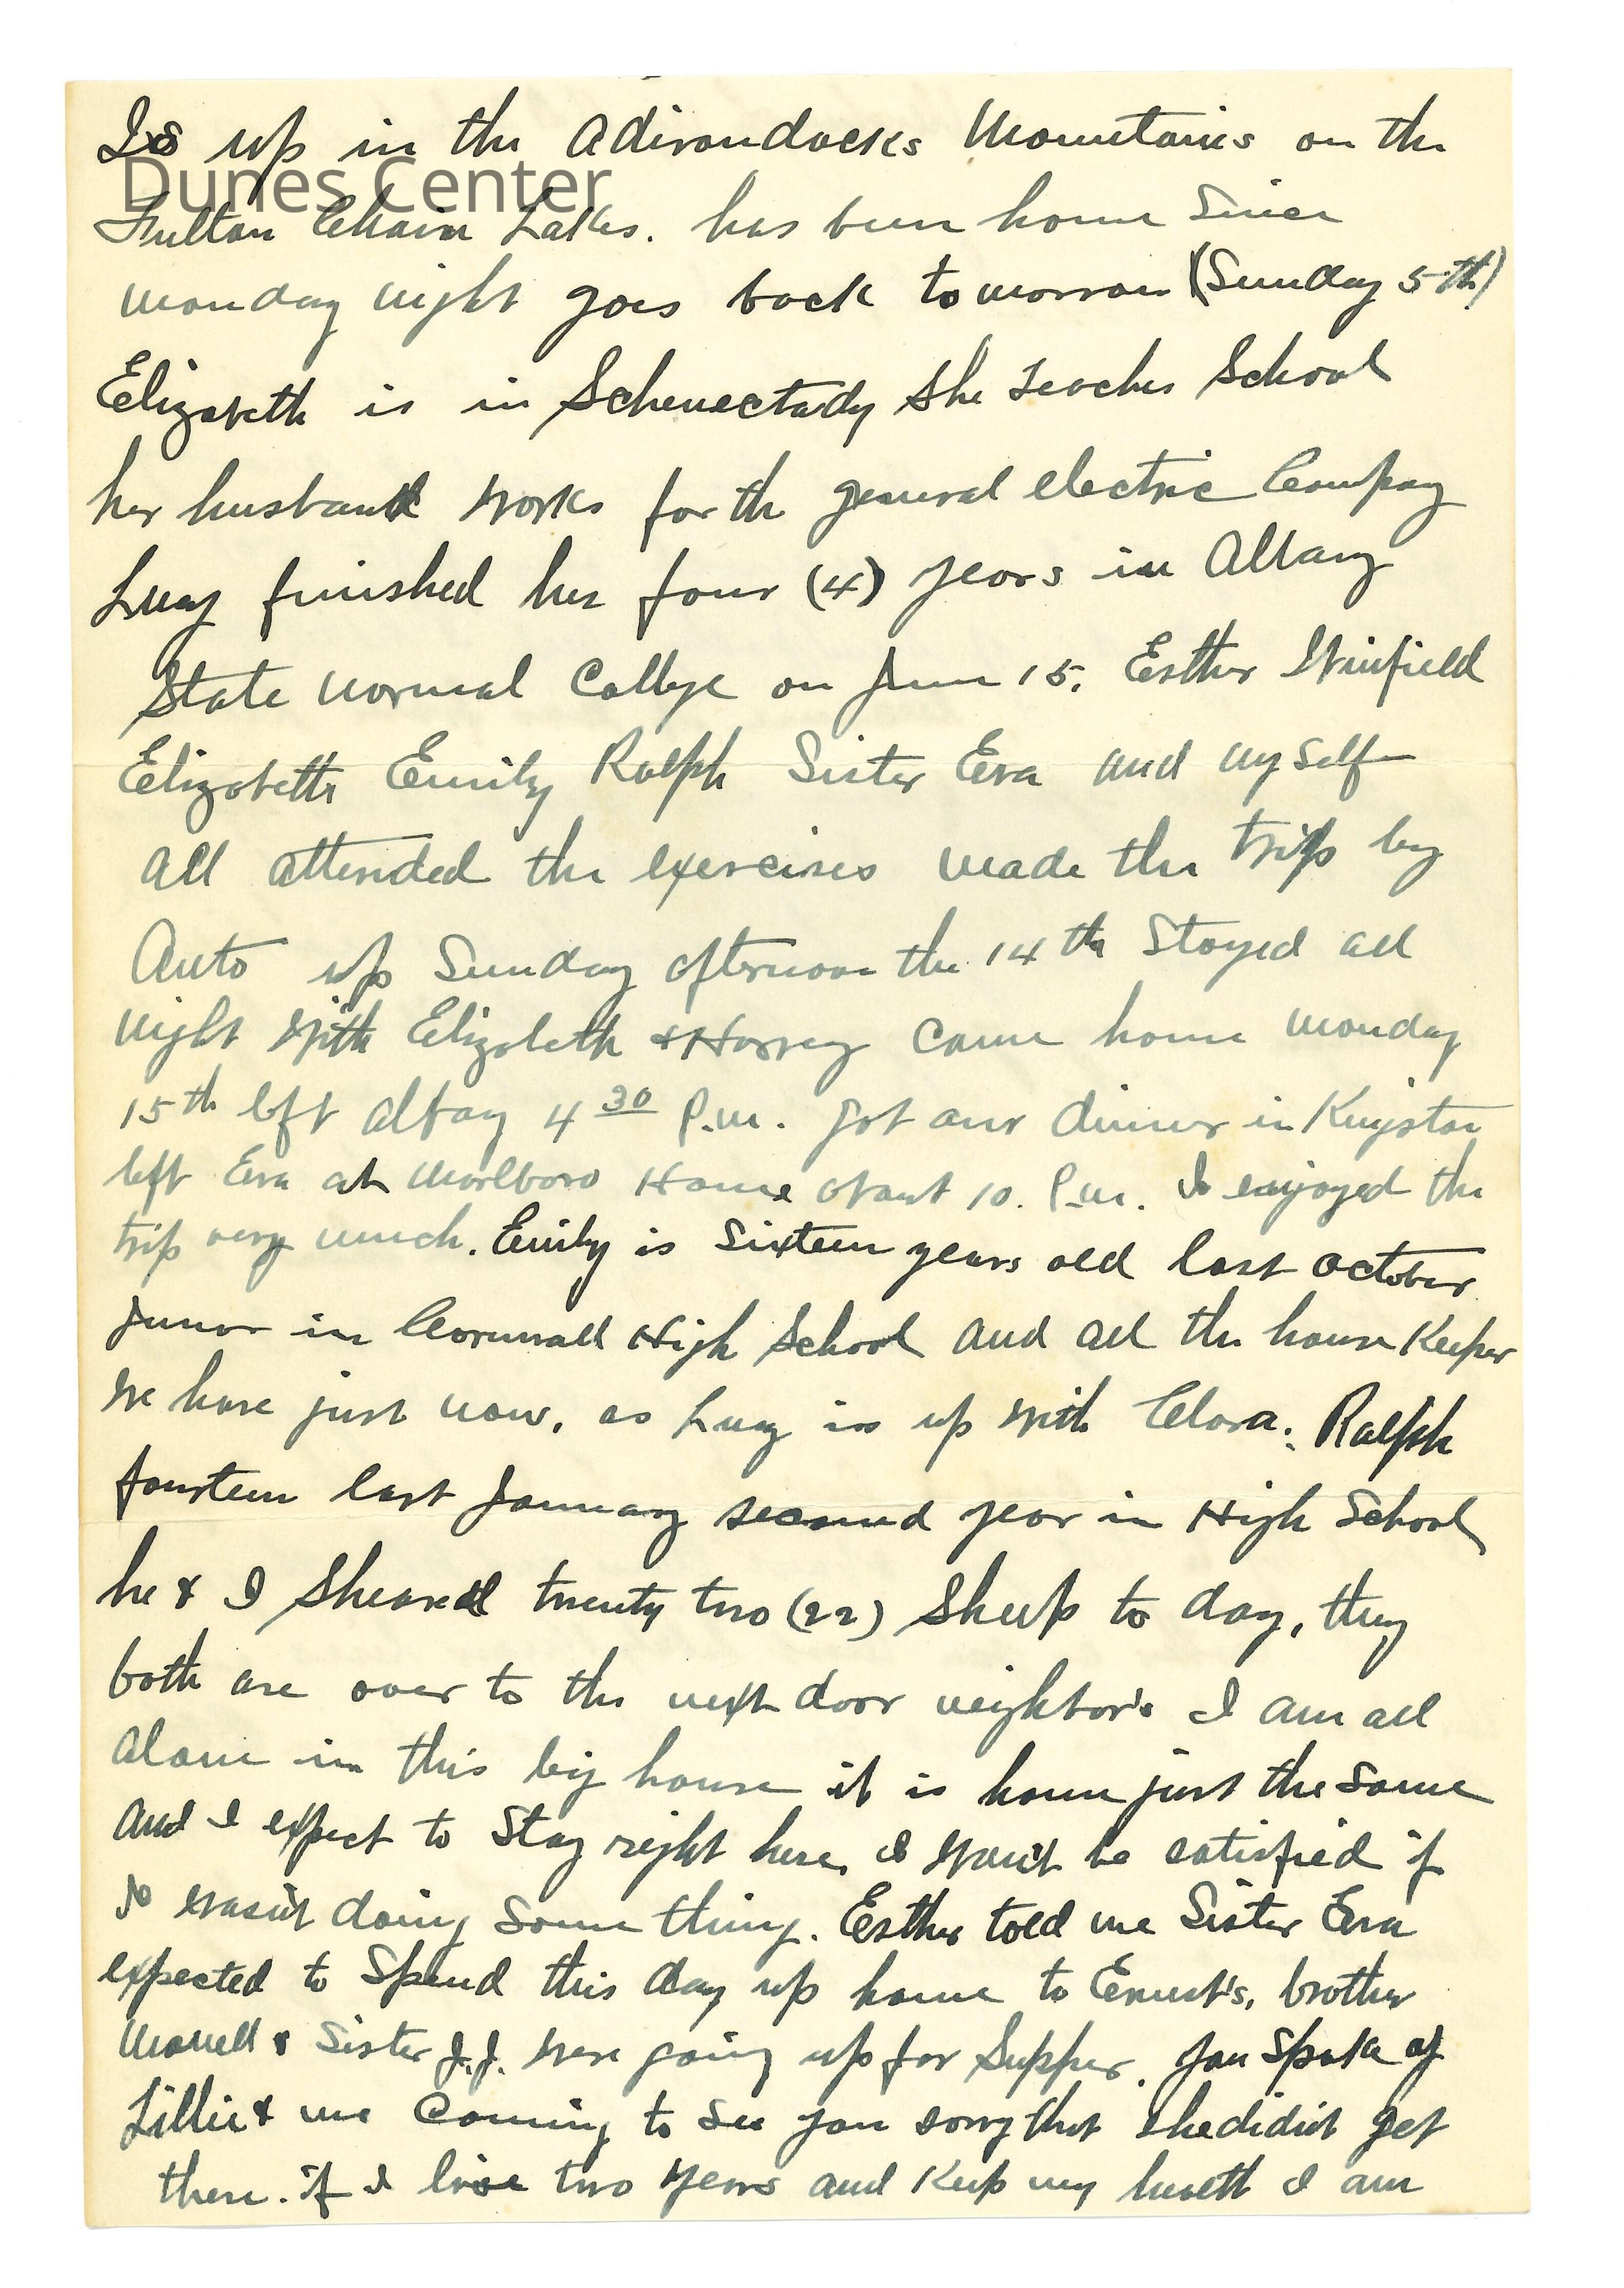 Is up in the Adirondacks Mountains on the
Dunes Center
Fulton Chain Lakes. has been home Since
monday night goes back tomorrow (Sunday 5th)
Elizabeth is in Schenectady She Teaches School
her husband works for the general electric Company
Lucy finished her four (4) years in Albany
State normal College on June 15. Esther Winfield
Elizabeth Emily Ralph Sister Eva and myself
all attended the exercises made the trip by
Auto up Sunday afternoon the 14th Stayed all
night with Elizabeth & Harry came home monday
15th left Albany 4 30 P.m. got our dinner in Kingston
left Eva at Marlboro Home about 10. P.m. I enjoyed the
trip very much. Emily is Sixteen years old last October
Junor in Cornwall High School and all the house Keeper
we have just now, as Lucy is up with Clara. Ralph
fourteen last January second year in High School
he & I Sheared twenty two (22) Sheep to day, they
both are over to the next door neighbor's I am all
alone in this big house it is home just the same
and I expect to Stay right here, I wont be satisfied if
I wasn't doing some thing. Esther told me Sister Eva
expected to Spend this day up home to Ernest's, brother
& Sister J.J. were going up for Supper. you spoke of
Lillie & me Coming to see you sorry that she didn't get
there. if I live two years and Keep my health I am